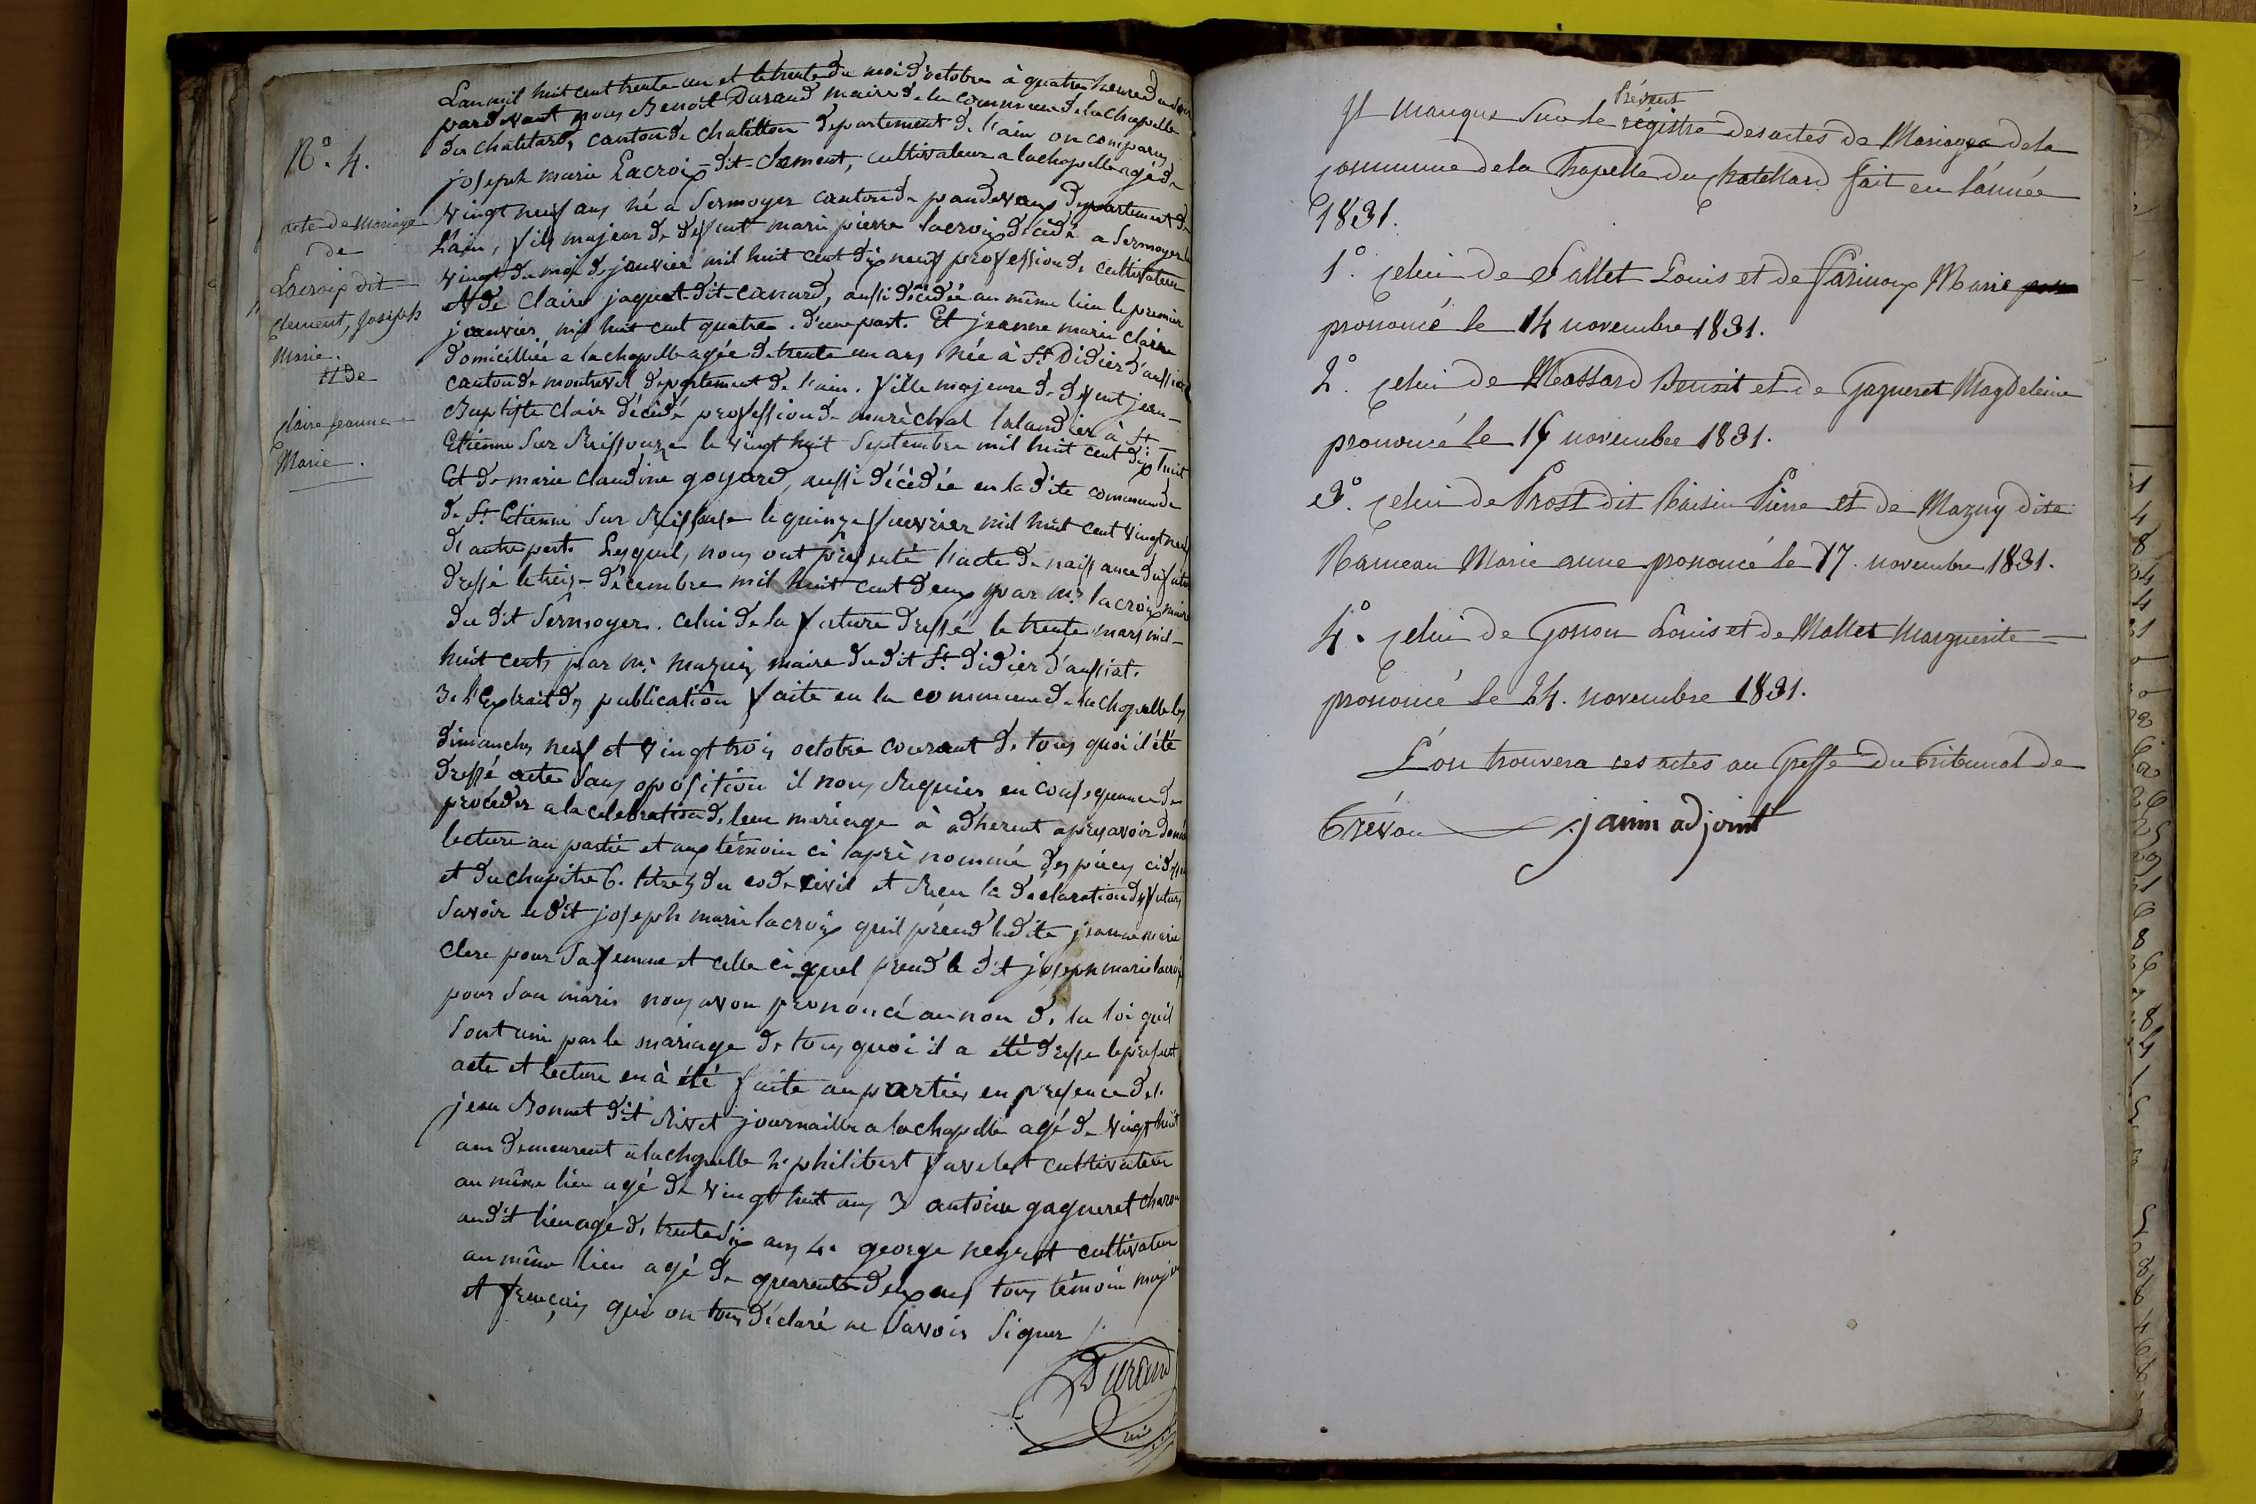 N°. 4.
acte de Mariage
de
Lacroix dit
Clement, Joseph
Marie.
Et de
Claire Jeanne
Marie.
L'an mil huit cent trente un et le trente du moi d'octobre à quatre heure du soir
pardevant nous Benoit Durand maire de la commune de la chapelle
du chatelard, canton de chatillon departement de l'ain on comparus
joseph marie Lacroix dit Clement, cultivateur a la chapelle agé de
vingt neuf ans né a Sermoyer canton de pondevaux departement de
L'ain, fils majeur de deffunt marie pierre lacroix décédé a Sermoyer le
vingt du moi de janvier mil huit cent dix neuf profession de cultivateur
et de Claire jaquet dit canard, aussi décédée au même lieu le premier
janvier mil huit cent quatre. d'une part. Et jeanne marie claire
domicilliée a la chapelle agée de trente un ans née à St Didier d'aussiat
canton de montrevel departement de l'ain. fille majeure de defunt jean
Baptiste clair décédé profession de marèchal talandier à St
Etienne Sur Reissouze le vingt huit Septembre mil huit cent dix huit
Et de marie claudine goyard, aussi décèdée en la dite commune de
de St Etienne Sur Reissouse le quinze fuevrier mil huit cent vingt neuf
d'autre part. Lesquels nous ont présenté l'acte de naissance du futur
dressé le treize décembre mil huit cent deux par mr. lacroix maire
du dit Sermoyer. celui de la future dressé le trente mars mil
huit cent, par mr. mazuis maire dudit St. didier d'aussiat.
3. l'extrait des publication faite en la commune de la chapelle les
dimanches neuf et vingt trois octobre courant de tous quoi il été
dressé acte sans oposition il nous requier en consequence de
procéder a la celebration de leur mariage à adherent apres avoir doné
lecture au partie et aux témoin ci aprè nommé des pieces ci dessu
et du chapitre 6. titre 5 du code civil et Recu la declaration des futurs
Savoir le dit joseph marie lacroix quil prend ladite jeanne marie
clere pour Sa femme et celle ci quel prend le dit joseph marie lacroix
pour Son maris nous avon prononcé au non de la loi quil
Sont uni par le mariage de tous quoi il a été dresse le present
acte et lecture en à été faite au parties en presence de 1.
jean Bonnet dit Rivet journaillie a la chapelle agé de vingt huit
ans demeurent a la chapelle 2. philibert favelet cultivateur
au même lieu agé de vingt huit ans 3 antoine gagneret charon
audit lieu agé de trente six ans 4. george neyret cultivateur
au même lieu agé de quarente deux ans tous témoin majeur
et françois qui on tous déclaré ne Savoir Signer
Durand
Il manque sur le présent régistre des actes de Mariages de la
commune de la Chapelle du Chatellard fait en l'année
1831.
1°. Celui de Sallet Louis et de Farinoux Marie
prononcé le 14 novembre 1831.
2°. Celui de Massard Benoit et de Gagneret Magdeleine
prononcé le novembre 1831.
3°. Celui de Prost dit Raisin Pierre et de Mazuy dite
Rameau Marie anne prononcé le 17. novembre 1831.
4°. Celui de Gonon Louis et de Mallet Marguerite
prononcé le 24. novembre 1831.
L'on trouvera ces actes au Greffe du Tribunal de
Trévou janin adjoint